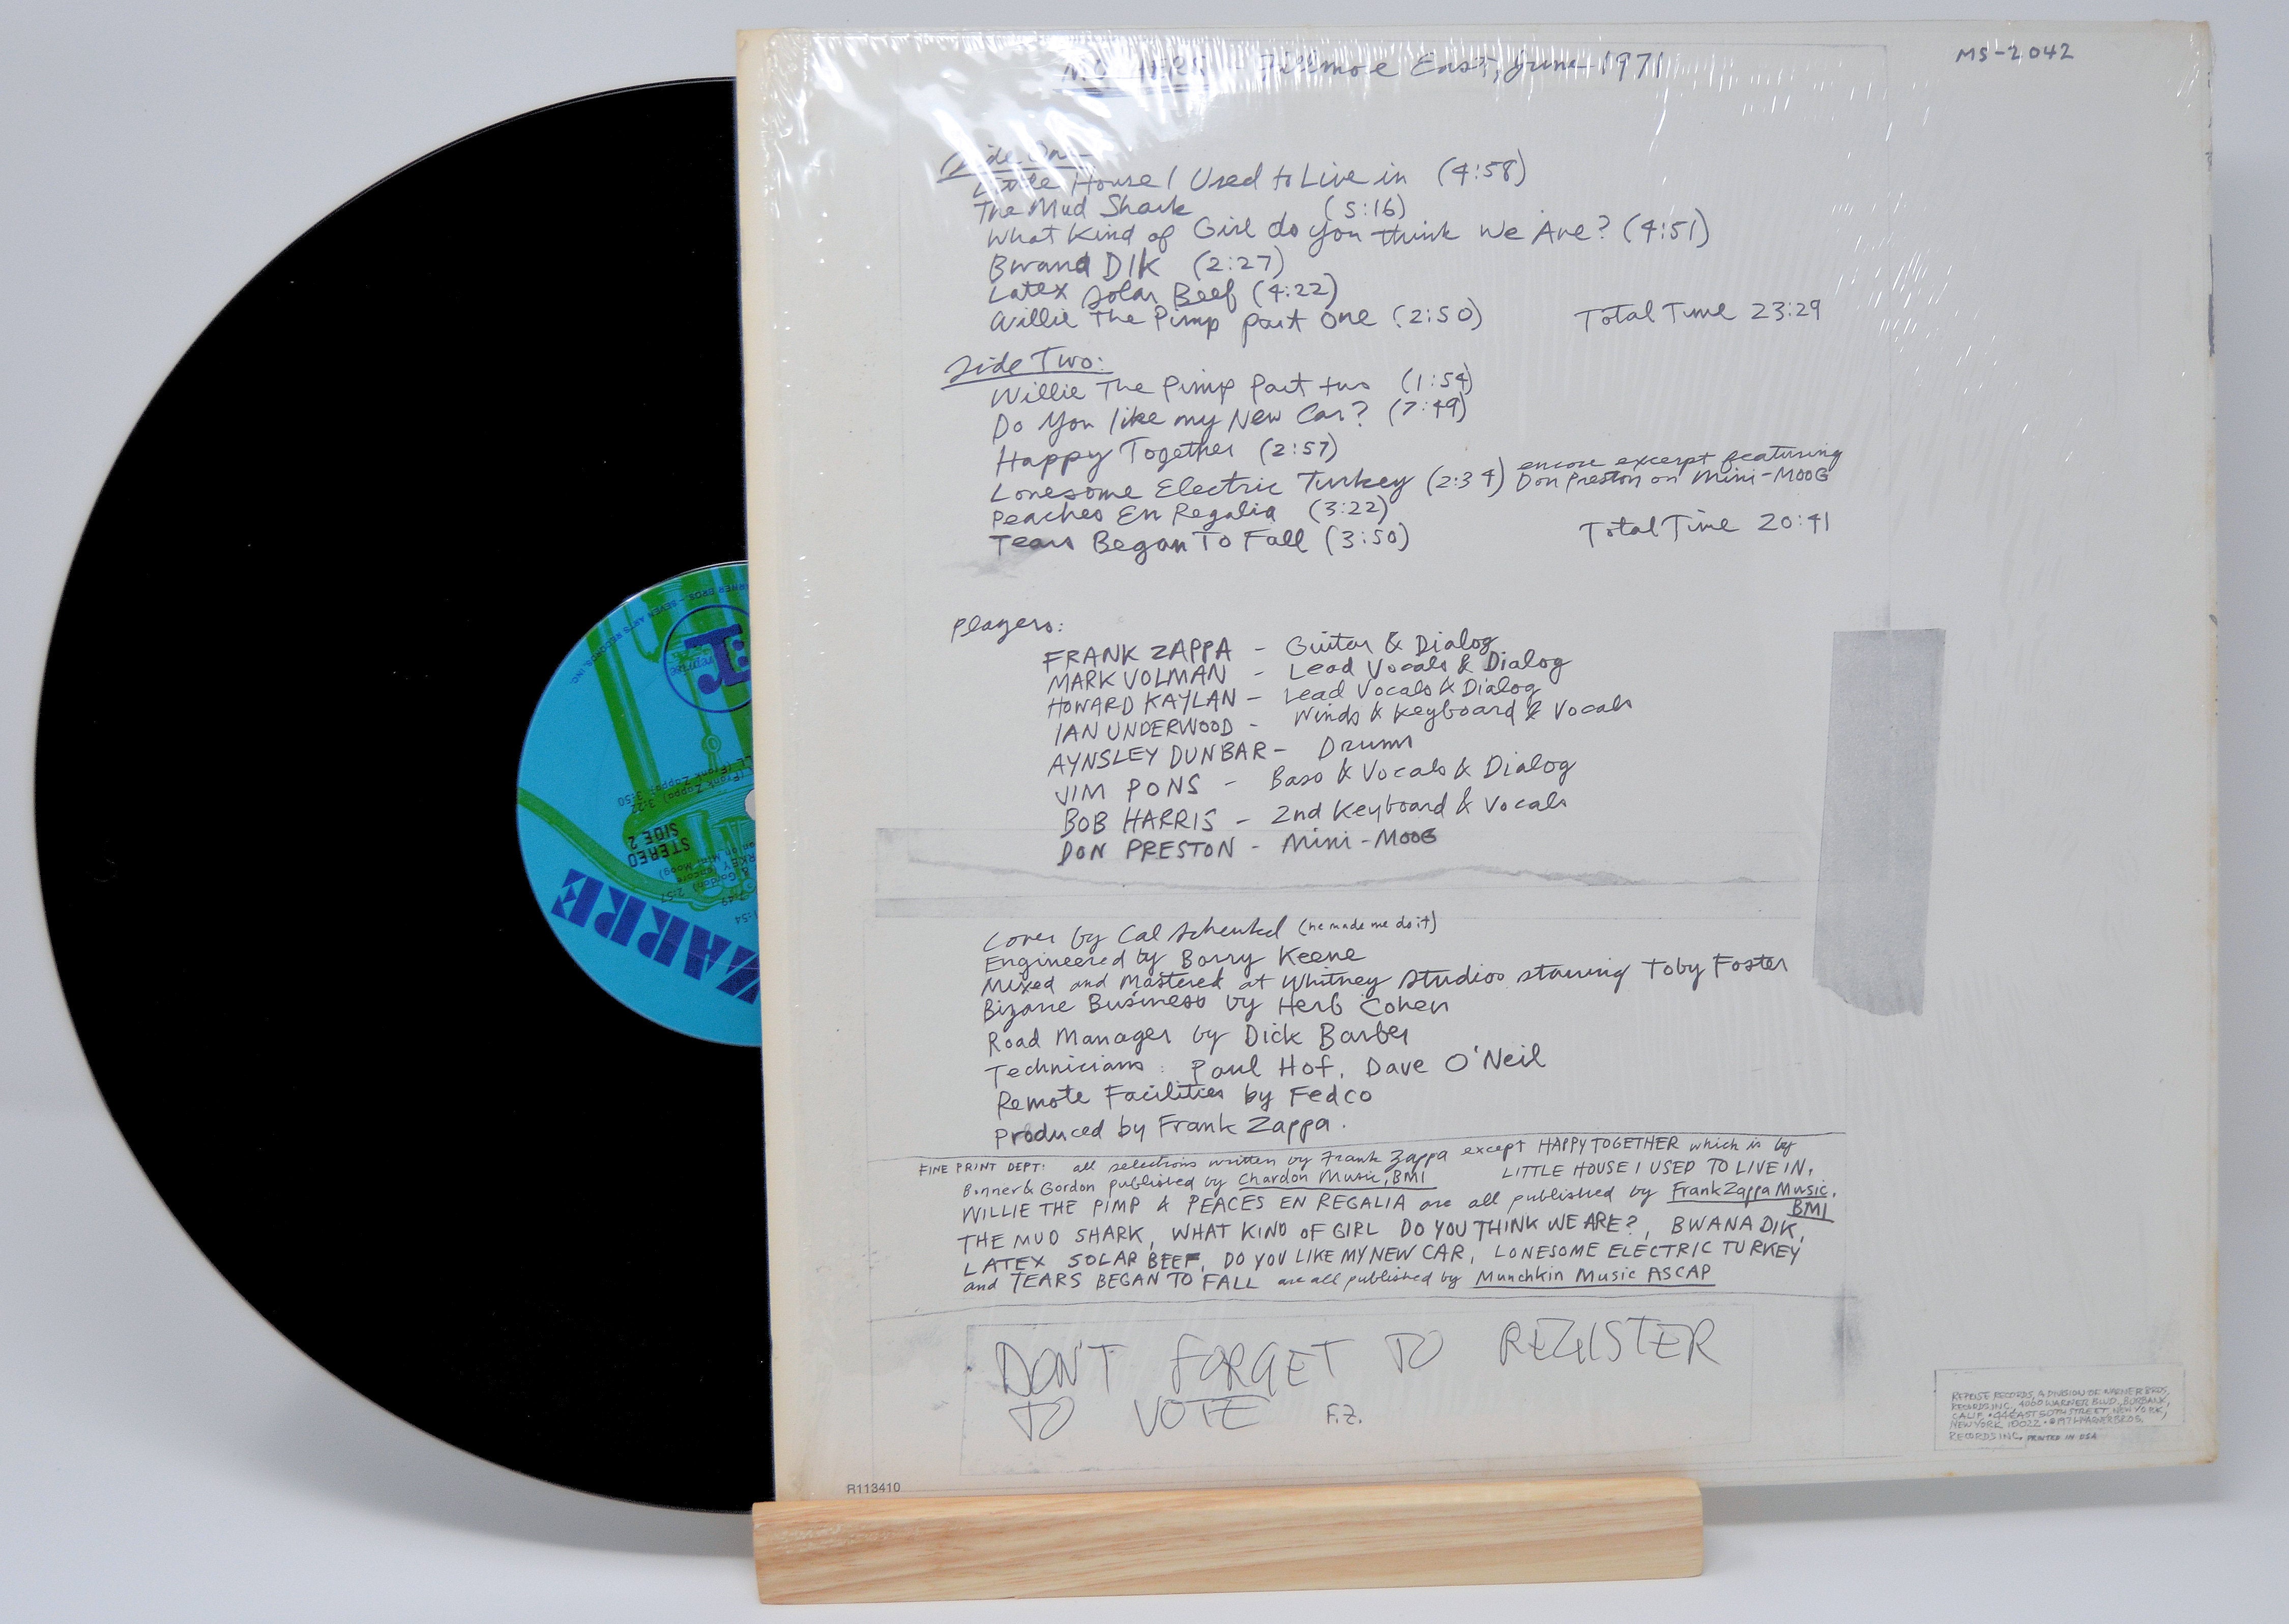 MOTHERS - Fillmore East, June 1971
MS-2042
Side One
Little House I Used to Live in (4:58)
The Mud Shark (5:16)
What Kind of Girl do you think We Are? (4:51)
Bwana DIK (2:27)
Latex Solar Beef (4:22)
Willie The Pimp part One (2:50) Total Time 23:29
Side Two:
Willie The Pimp Part two (1:54)
Do You like my New Car? (7:49)
Happy Together (2:57)
Lonesome Electric Turkey (2:34) encore excerpt featuring
Don Preston on Mini-MOOG
Peaches En Regalia (3:22)
Tears Began To Fall (3:50) Total Time 20:41
Players:
FRANK ZAPPA - Guitar & Dialog
MARK VOLMAN - Lead Vocals & Dialog
HOWARD KAYLAN - Lead Vocals & Dialog
IAN UNDERWOOD - Winds & Keyboard & Vocals
AYNSLEY DUNBAR - Drums
JIM PONS - Bass & Vocals & Dialog
BOB HARRIS - 2nd Keyboard & Vocals
DON PRESTON - Mini-MOOG
Cover by Cal Schenkel (he made me do it)
Engineered by Barry Keene
Mixed and Mastered at Whitney Studios starring Toby Foster
Bizarre Business by Herb Cohen
Road Manager by Dick Barber
Technicians: Paul Hof, Dave O'Neil
Remote Facilities by Fedco
Produced by Frank Zappa.
FINE PRINT DEPT: all selections written by Frank Zappa except HAPPY TOGETHER which is by
Bonner & Gordon published by Chardon Music, BMI LITTLE HOUSE I USED TO LIVE IN,
WILLIE THE PIMP & PEACES EN REGALIA are all published by Frank Zappa Music,
BMI
THE MUD SHARK, WHAT KIND OF GIRL DO YOU THINK WE ARE?, BWANA DIK,
LATEX SOLAR BEEF, DO YOU LIKE MY NEW CAR, LONESOME ELECTRIC TURKEY
and TEARS BEGAN TO FALL are all published by Munchkin Music ASCAP
DON'T FORGET TO REGISTER
TO VOTE F.Z.
REPRISE RECORDS, A DIVISION OF WARNER BROS.
RECORDS INC. 4000 WARNER BLVD., BURBANK,
CALIF. • 44 EAST 50TH STREET, NEW YORK,
NEW YORK 10022 • ©1971 WARNER BROS.
RECORDS INC. PRINTED IN USA
R113410
ARNER BROS - SEVEN ARTS RECORDS, INC.
reprise
(Frank Zappa) 3:22
(Frank Zappa) 3:50
STEREO
SIDE 2
Gordon) 2:57
7:49
:54